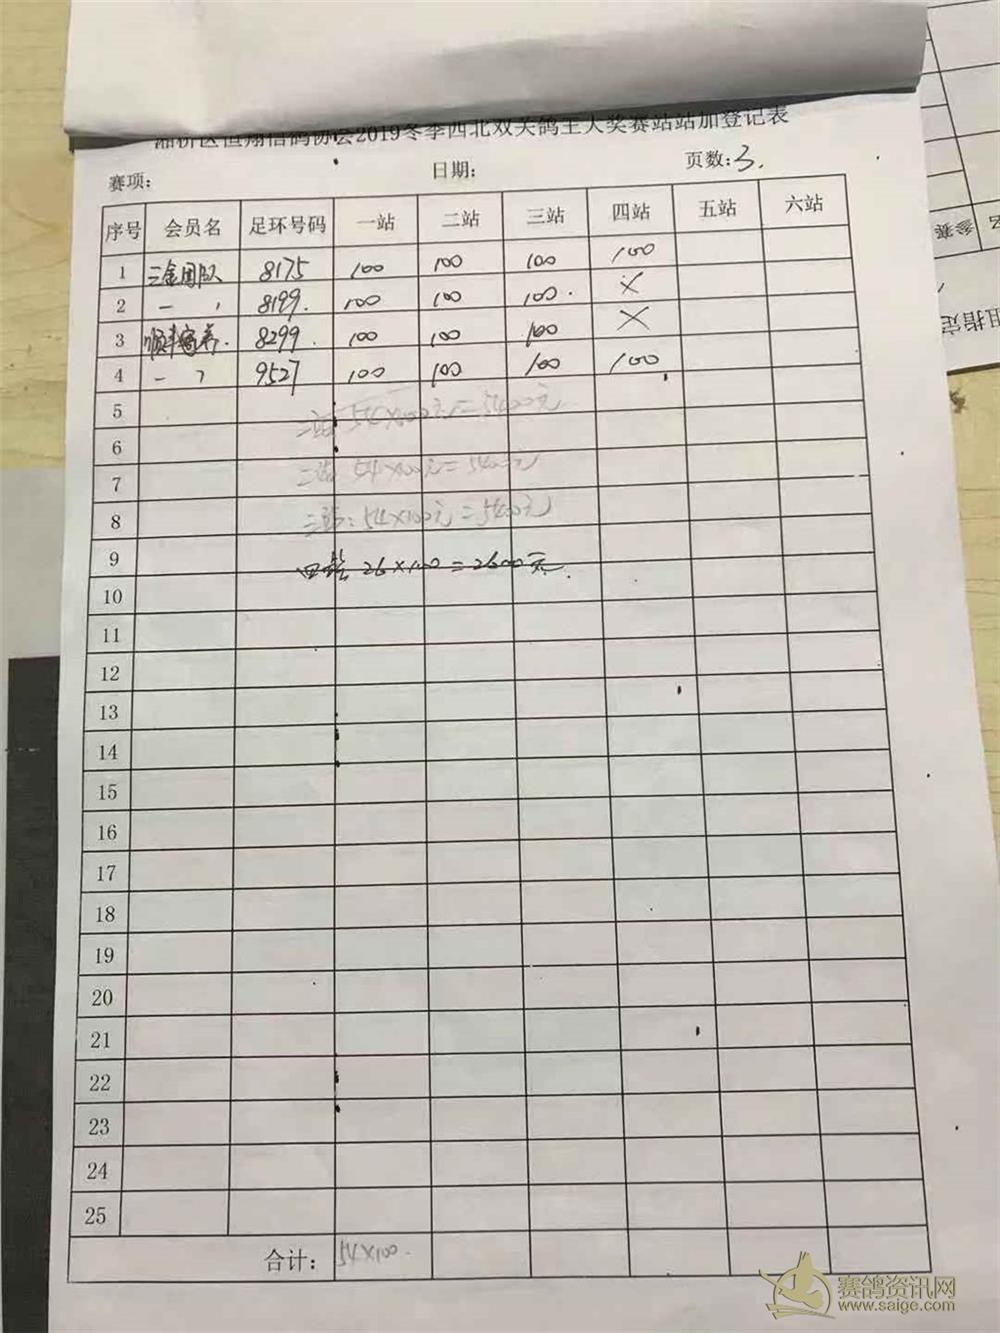 湘桥区恒翔信鸽协会2019冬季西北双关鸽王大奖赛站站加登记表
赛项: 日期: 页数:3.
序号 会员名 足环号码 一站 二站 三站 四站 五站 六站
1 三金团队 8175 100 100 100 100
2 一 , 8199. 100 100 100. ×
3 顺丰寄养. 8299. 100 100 100 ×
4 一 , 9527 100 100 100 100
5
一站 54×100元=5400元
6
7
二站 54×100元=5400元
8
三站:54×100元=5400元
9
四站 26×100=2600元.
10
11
12
13
14
15
16
17
18
19
20
21
22
23
24
25
合计: 54×100.
参赛
组指定
赛鸽资讯网
www.saige.com